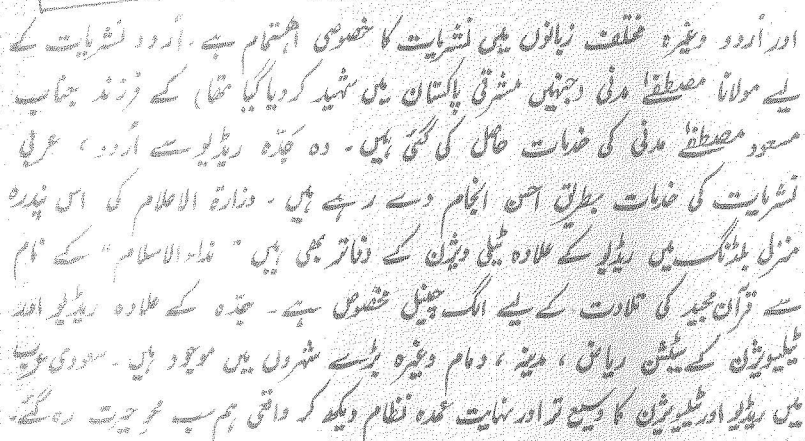 اور اُردو وغیرہ مختلف زبانوں میں نشریات کا خصوصی اہتمام ہے۔ اُردو نشریات کے
لیے مولانا مصطفےٰ مدنی (جنہیں مشرقی پاکستان میں شہید کر دیا گیا تھا) کے فرزند جناب
مسعود مصطفےٰ مدنی کی خدمات حاصل کی گئی ہیں۔ وہ جدّہ ریڈیو سے اُردو، عربی
نشریات کی خدمات بطریق احسن انجام دے رہے ہیں۔ وزارۃ الاعلام کی اس پندرہ
منزلہ بلڈنگ میں ریڈیو کے علاوہ ٹیلی ویژن کے دفاتر بھی ہیں "نداء الاسلام" کے نام
سے قرآن مجید کی تلاوت کے لیے الگ چینل مخصوص ہے۔ جدّہ کے علاوہ ریڈیو اور
ٹیلیویژن کے سٹیشن ریاض، مدینہ، دمام وغیرہ بڑے شہروں میں موجود ہیں۔ سعودی عرب
میں ریڈیو اور ٹیلیویژن کا وسیع تر اور نہایت عمدہ نظام دیکھ کر واقعی ہم سب محوِ حیرت رہ گئے۔